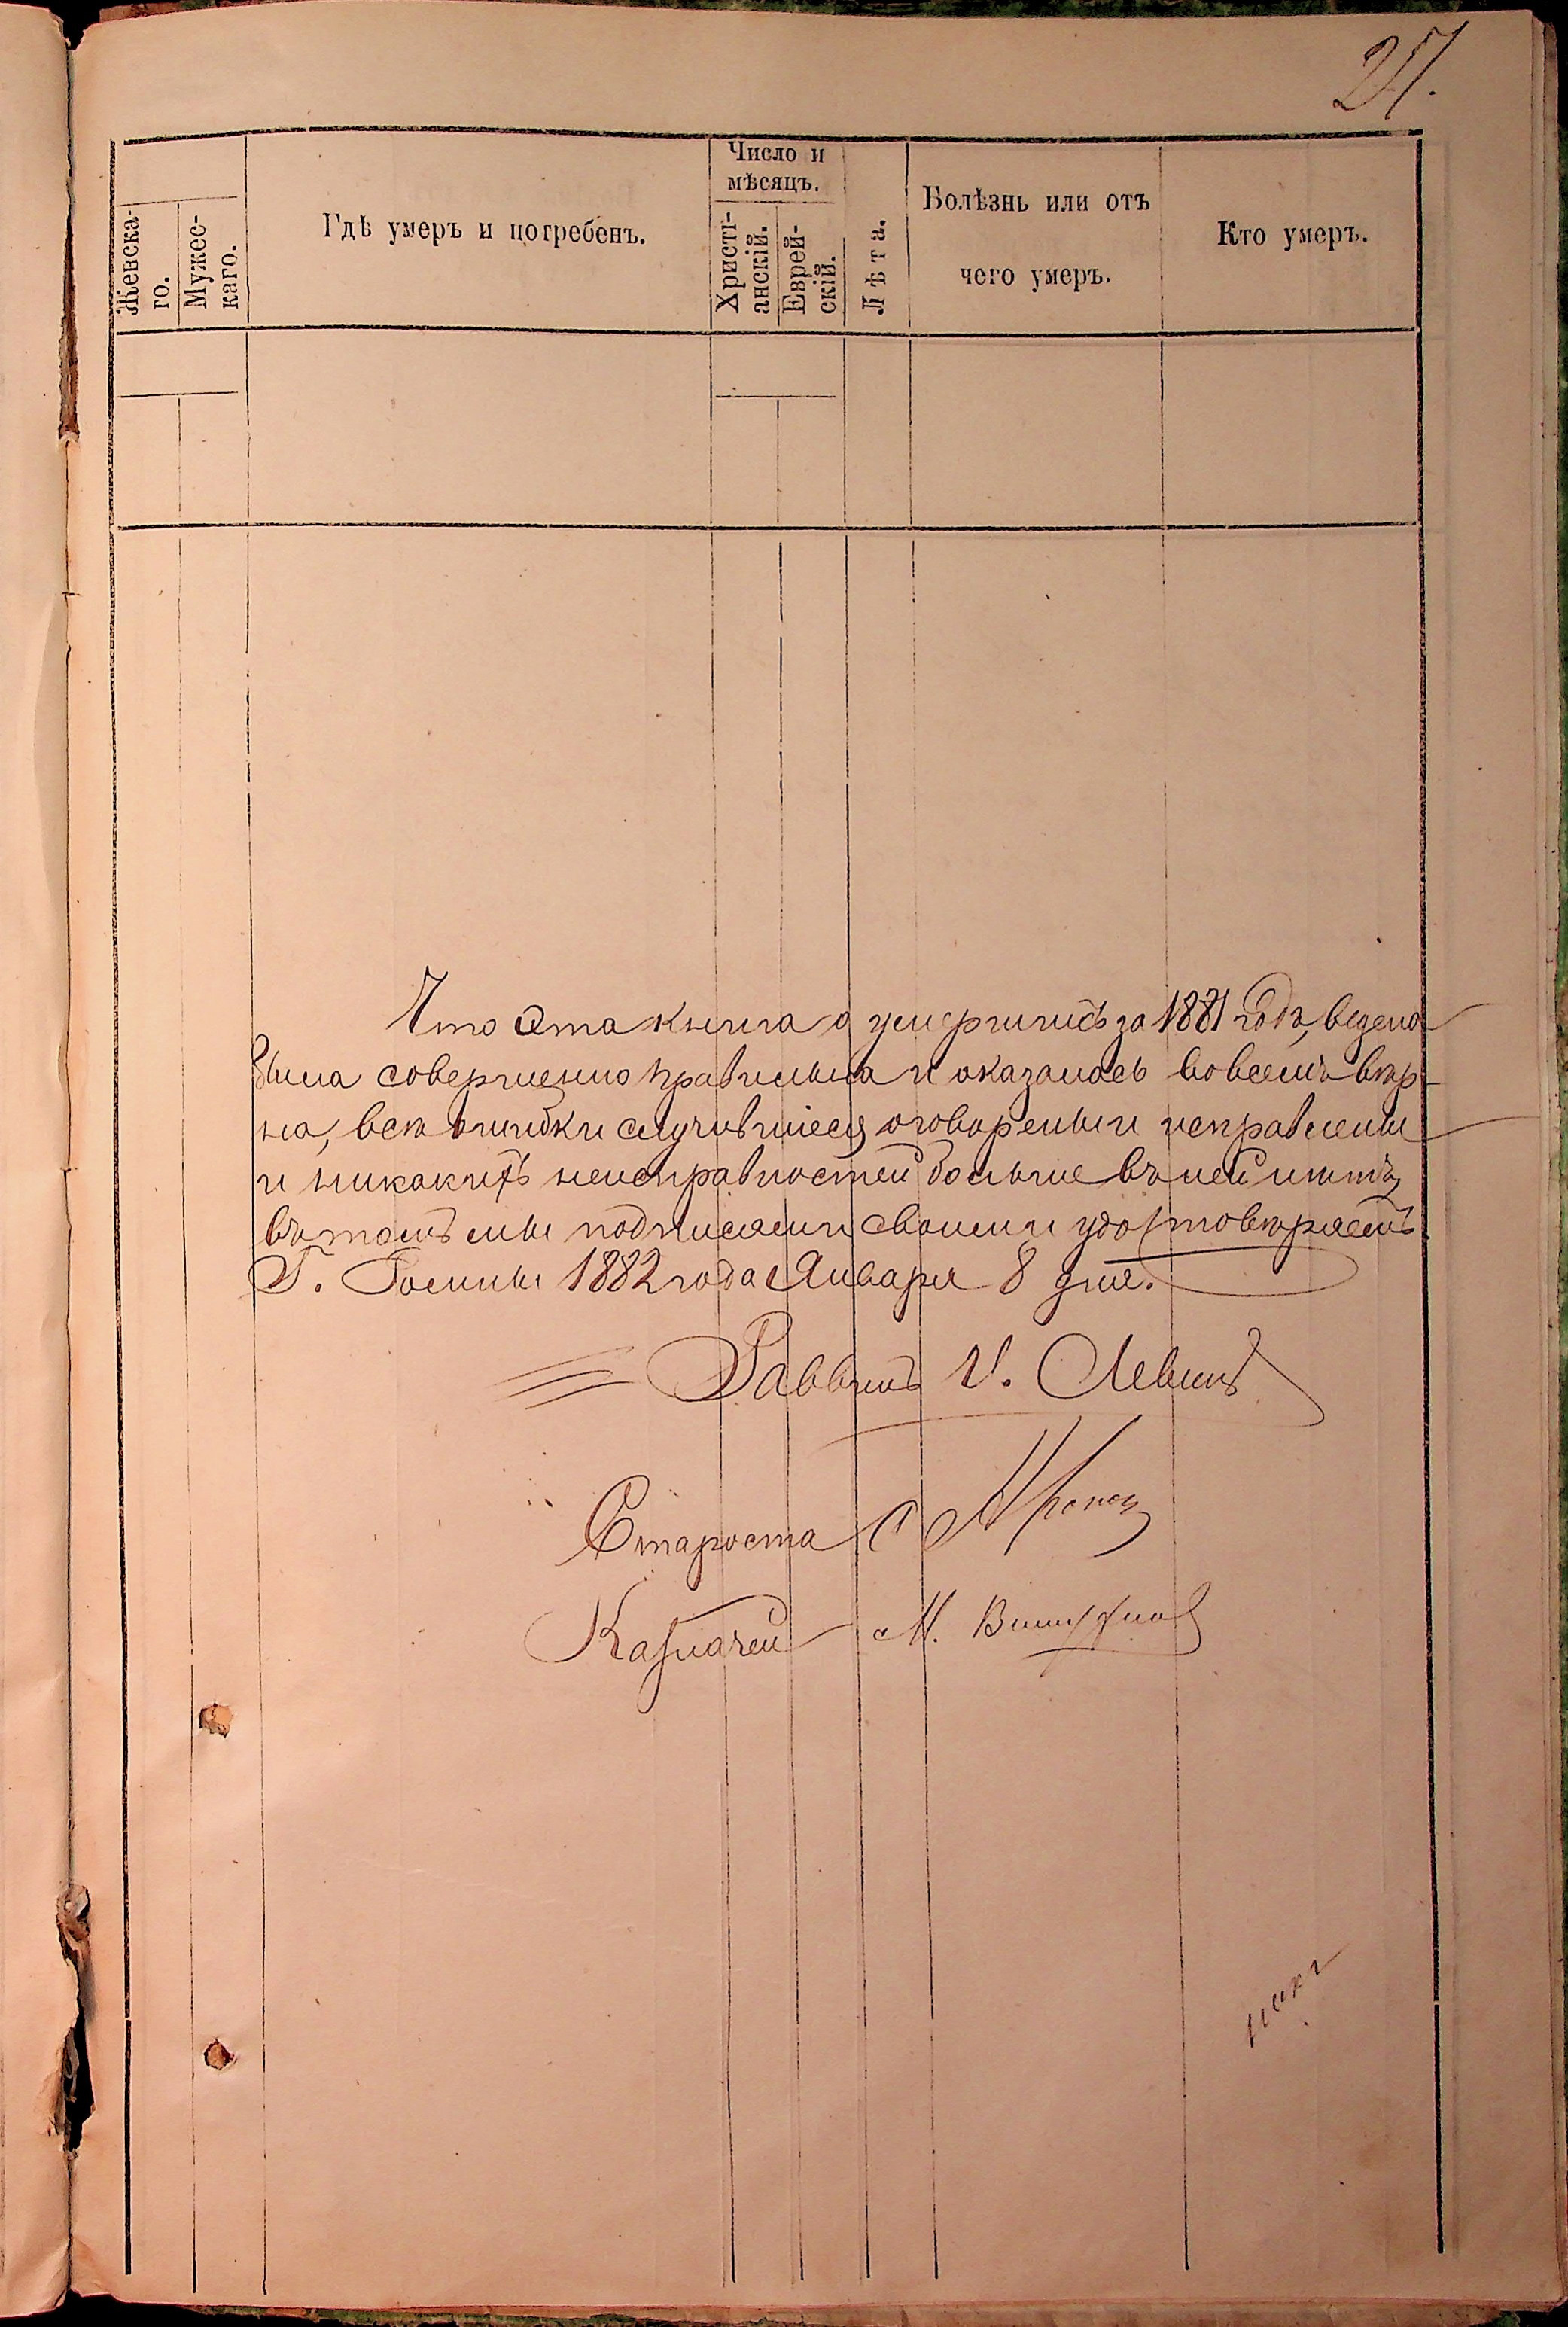 27.
Число и
мѣсяцъ.
Женска-
го.
Мужес-
каго.
Гдѣ умеръ и погребенъ.
Христі-
анскій.
Еврей-
скій.
Лѣта.
Болѣзнь или отъ
чего умеръ.
Кто умеръ.
Что эта книга о умершихъ за 1881 годъ, ведена
была совершенно правильна и оказалась во всемъ вѣр-
на, всѣ ошибки случившіеся оговорены и исправлены
и никакихъ неисправностей больше въ ней нѣтъ,
въ томъ мы подписями своими удостовѣряемъ
Г. Ромны 1882 года Января 8 дня.
Раввинъ И. Левинъ
Староста
Казначей М.